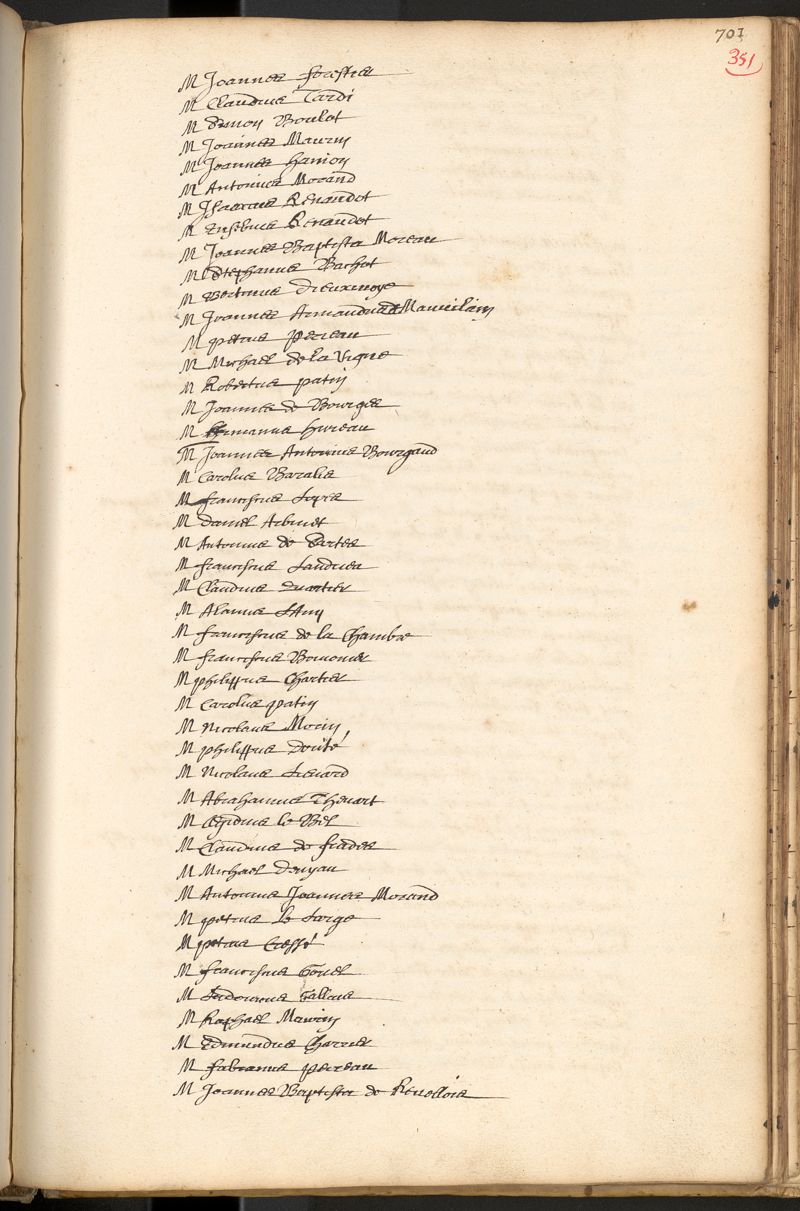 701
351
M Joannes Forestier
M Claudius Tardi
M Simon Boulot
M Joannes Maurin
M Joannes Hamon
M Antonius Morand
M Isaacus Renaudot
M Eusebius Renaudot
M Joannes Baptista Moreau
M Stephanus Bachot
M Bertinus Dieuxivoye
M Joannes Armandus de Mauvilain
M petrus perreau
M Michael de la Vigne
M Robertus patin
M Joannes de Bourges
M Germanus Hureau
M Joannes Antonius Bourgaud
M Carolus Baralis
M franciscus Lopes
M Daniel Arbinet
M Antonius de Sartes
M franciscus Landrieu
M Claudius Quartier
M Alanus Lamy
M franciscus de la Chambre
M franciscus Boujonier
M philippus Chartier
M Carolus patin
M Nicolaus Morin
M philippus Douté
M Nicolaus Lienard
M Abrahamus Thevart
M Ægidius le Bel
M Claudius de frades
M Michael Denyau
M Antonius Joannes Morand
M petrus le Large
M petrus Cressé
M franciscus Gouel
M Ludovicus Gallais
M Raphael Maurin
M Edmundus Charrier
M fabianus perreau
M Joannes Baptista de Revellois